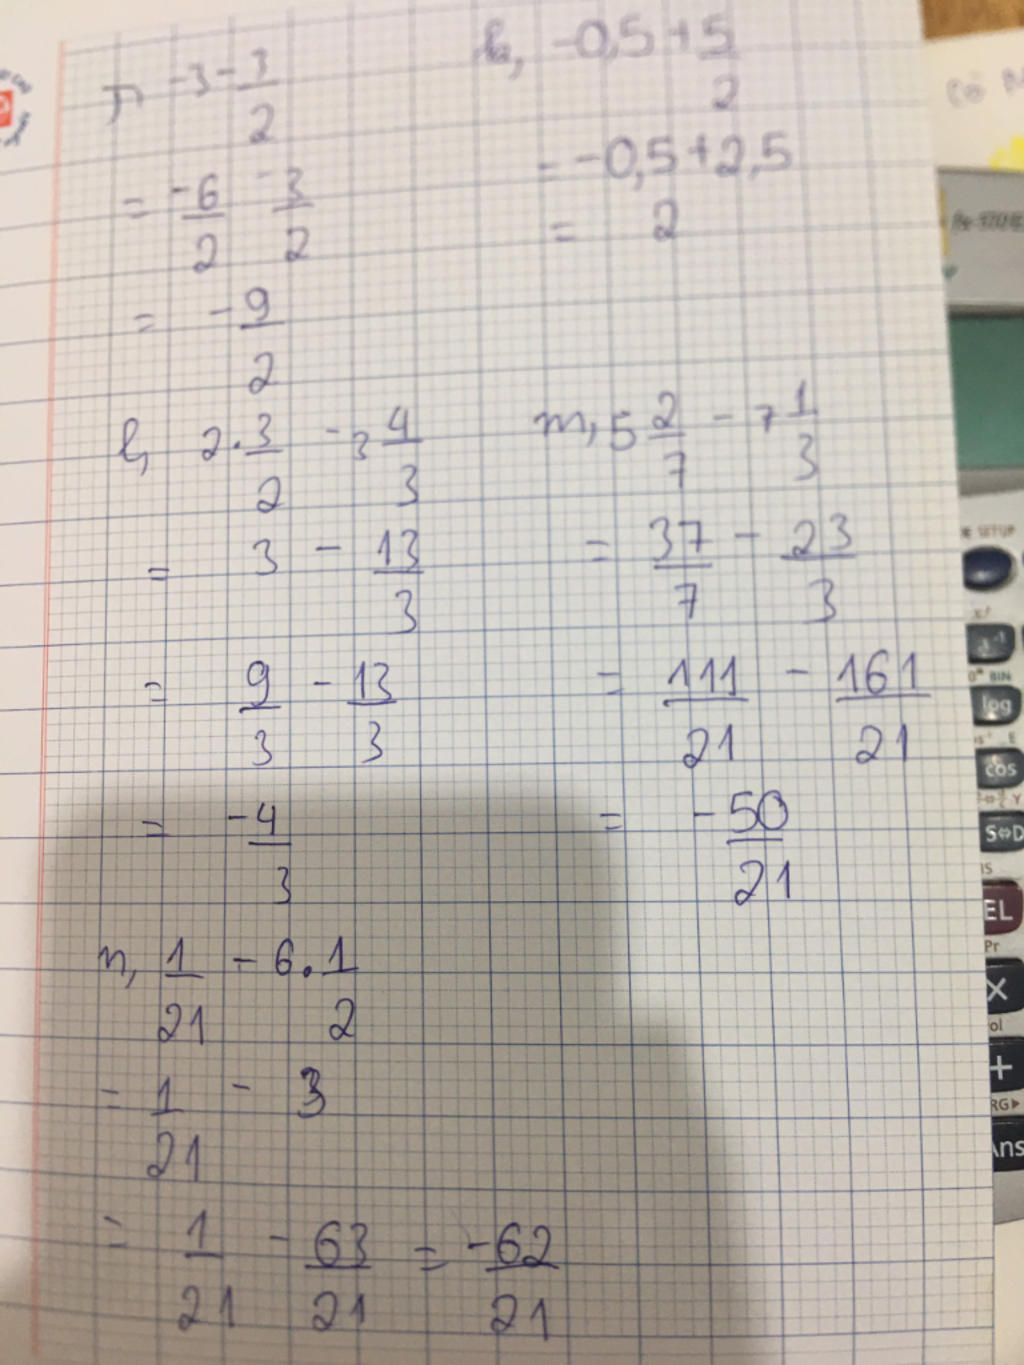 -3 - 3/2
= -6/2 - 3/2
= -9/2
k, -0,5 + 5/2
= -0,5 + 2,5
= 2
l, 2 . 3/2 - 3 4/3
= 3 - 13/3
= 9/3 - 13/3
= -4/3
m, 5 2/7 - 7 1/3
= 37/7 - 23/3
= 111/21 - 161/21
= -50/21
n, 1/21 - 6 . 1/2
= 1/21 - 3
= 1/21 - 63/21 = -62/21
SETUP
log
BIN
cos
S⇔D
Pr
×
+
Ans